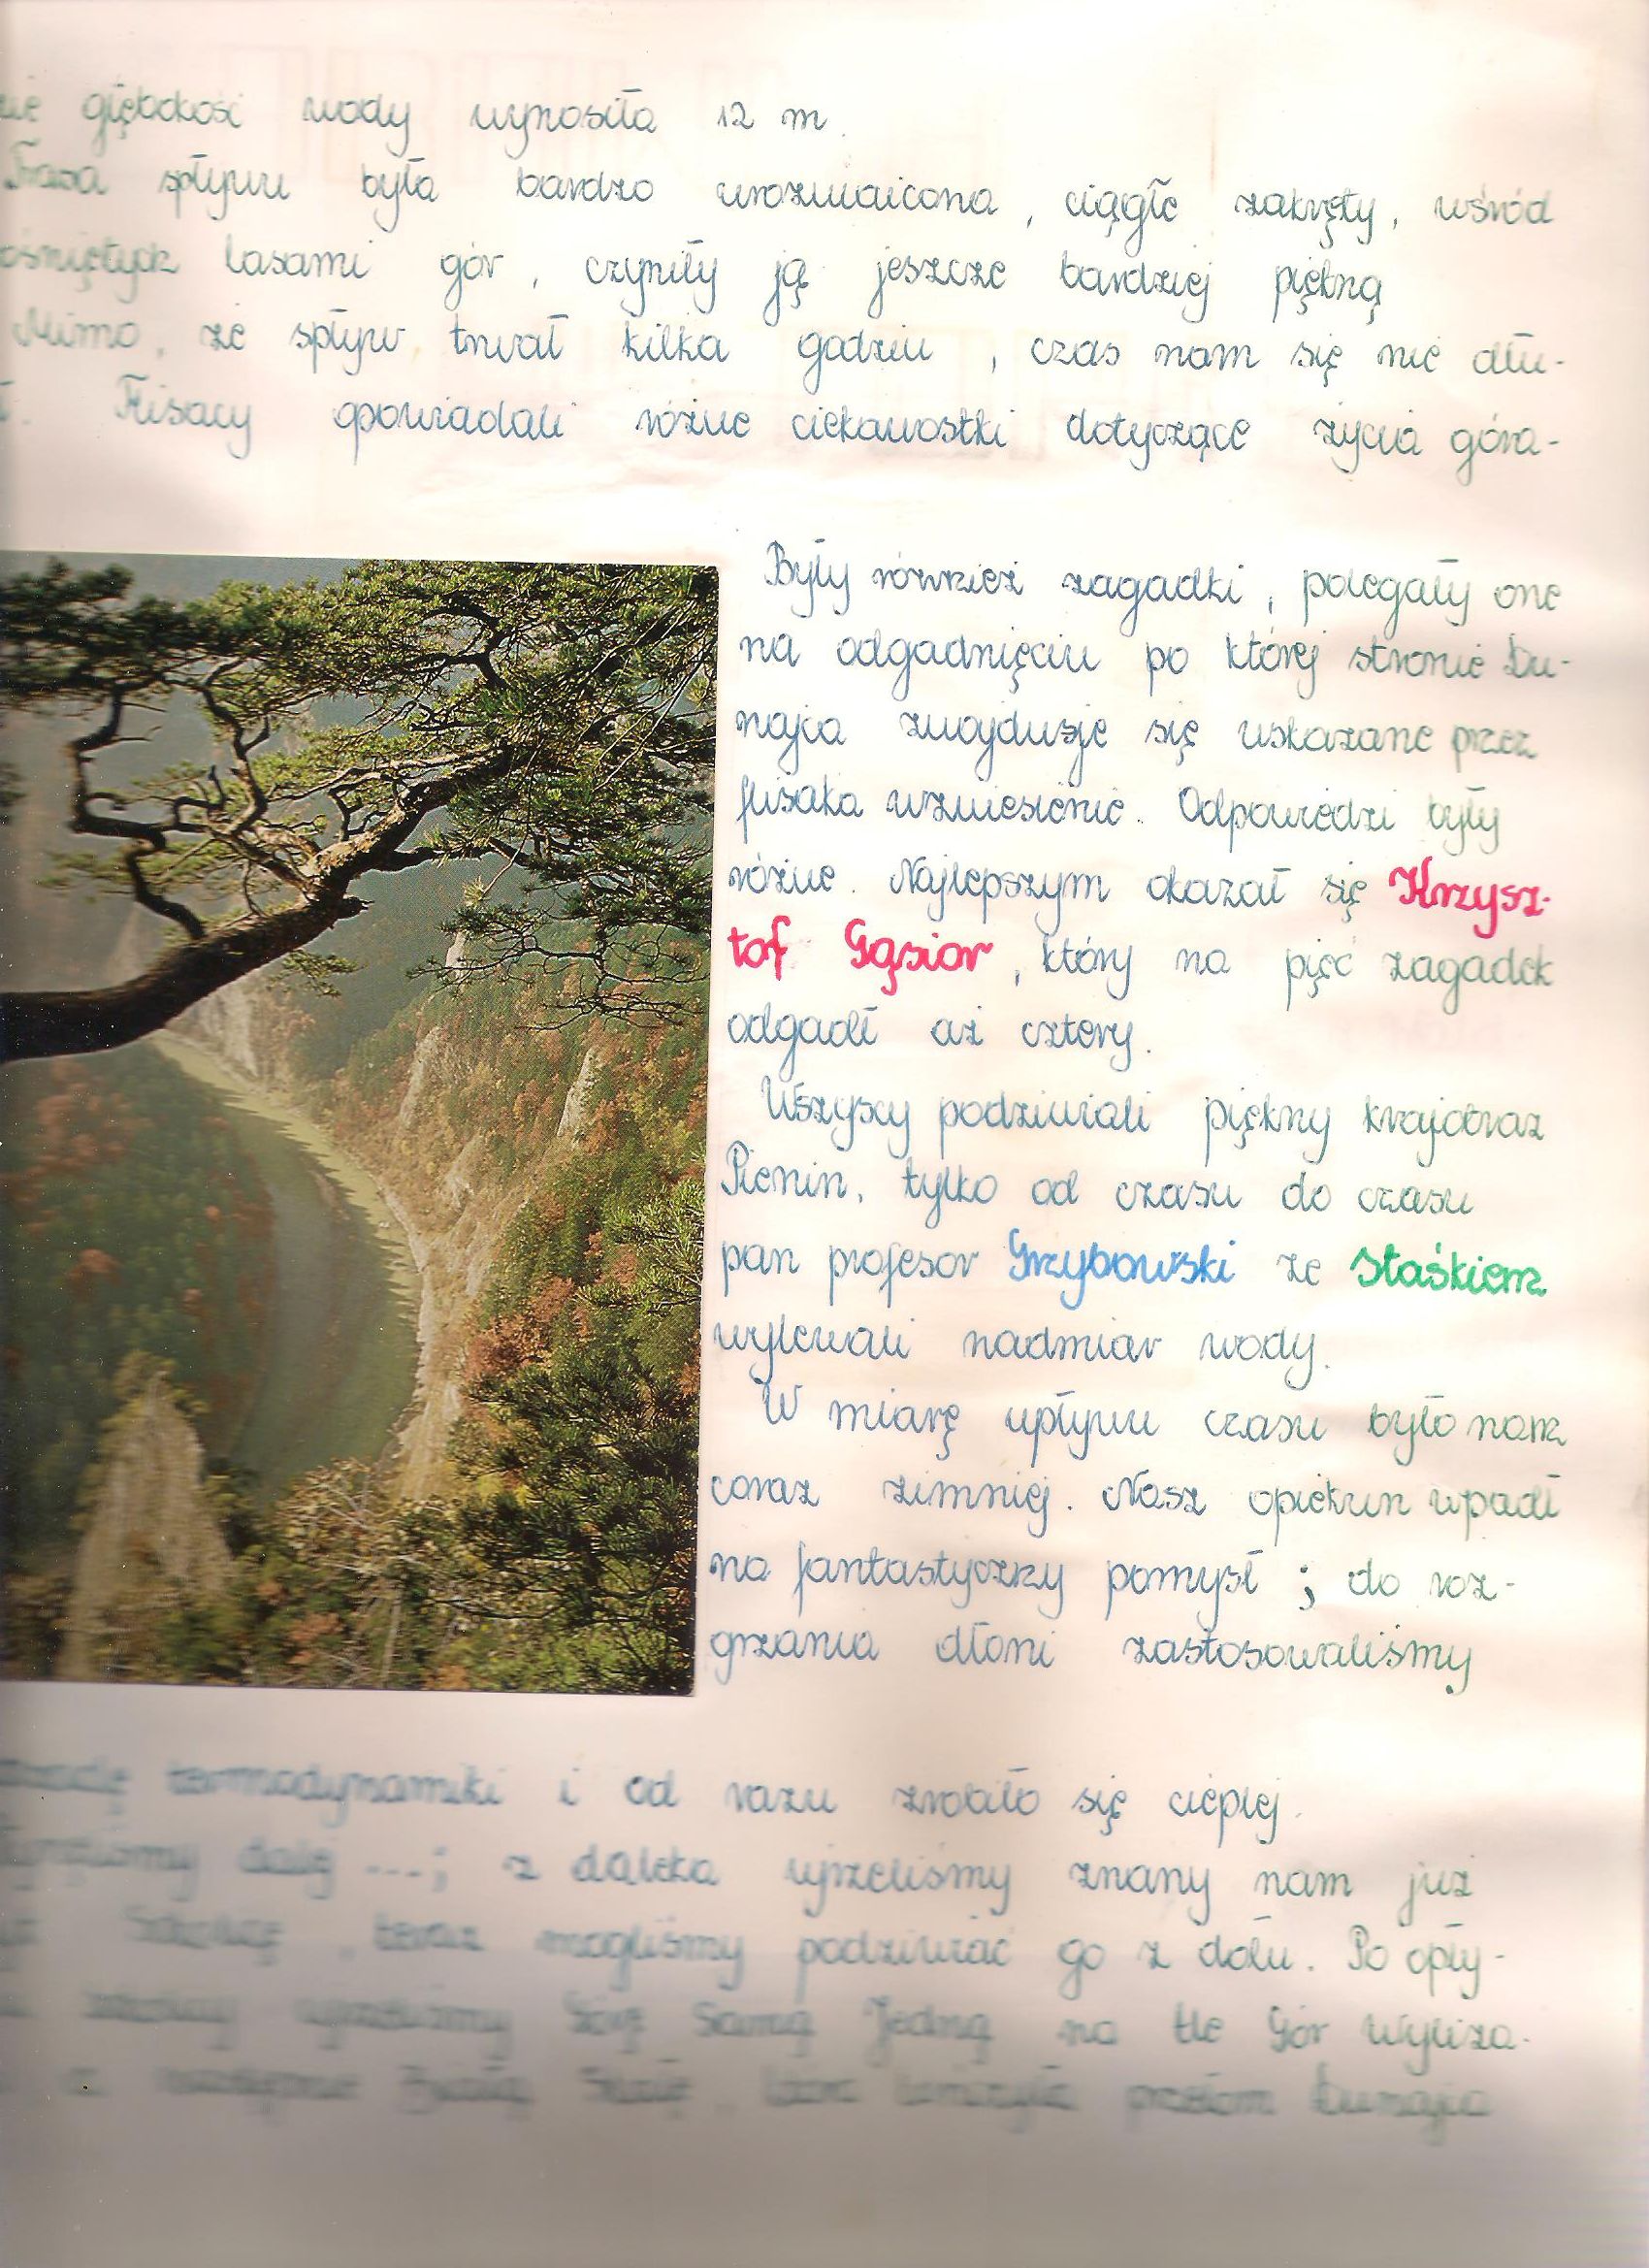 głębokość wody wynosiła 12 m.
Trasa spływu była bardzo urozmaicona, ciągłe zakręty, wśród
ośniętych lasami gór, czyniły ją jeszcze bardziej piękną
Mimo, że spływ trwał kilka godzin, czas nam się nie dłu-
Flisacy opowiadali różne ciekawostki dotyczące życia góra-
Były również zagadki, polegały one
na odgadnięciu po której stronie Du-
najca znajduje się wskazane przez
flisaka wzniesienie. Odpowiedzi były
różne. Najlepszym okazał się Krzysz-
tof Gąsior, który na pięć zagadek
odgadł aż cztery.
Wszyscy podziwiali piękny krajobraz
Pienin, tylko od czasu do czasu
pan profesor Grzybowski ze Staśkiem
wylewali nadmiar wody.
W miarę upływu czasu było nam
coraz zimniej. Nasz opiekun wpadł
na fantastyczny pomysł; do roz-
grzania dłoni zastosowaliśmy
termodynamiki i od razu zrobiło się cieplej.
dalej ---; z daleka ujrzeliśmy znany nam już
Sokolicę, teraz mogliśmy podziwiać go z dołu. Po opły-
ujrzeliśmy Górę Samą Jedną na tle Gór Wyliza-
a następnie Białą Skałę, która kończyła przełom Dunajca